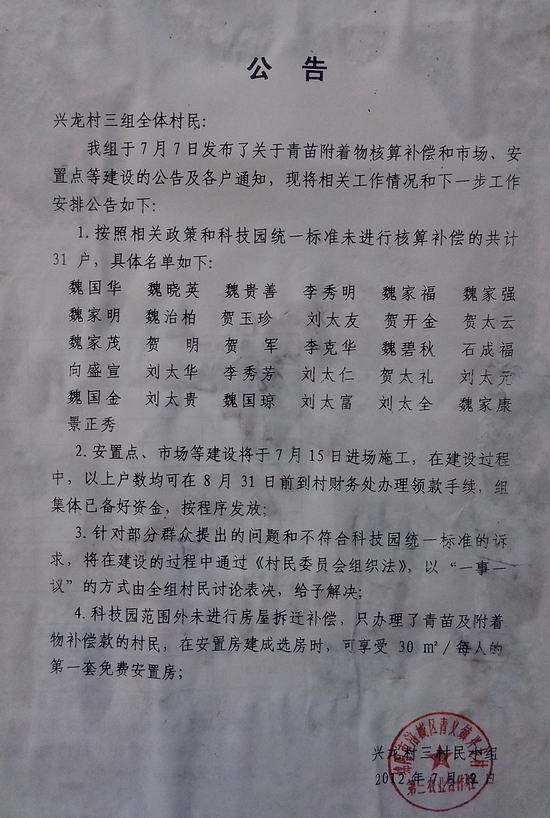 公 告
兴龙村三组全体村民:
我组于7月7日发布了关于青苗附着物核算补偿和市场、安
置点等建设的公告及各户通知，现将相关工作情况和下一步工作
安排公告如下:
1.按照相关政策和科技园统一标准未进行核算补偿的共计
31 户，具体名单如下:
魏国华 魏晓英 魏贵善 李秀明 魏家福 魏家强
魏家明 魏治柏 贺玉珍 刘太友 贺开金 贺太云
魏家茂 贺 明 贺 军 李克华 魏碧秋 石成福
向盛宣 刘太华 李秀芳 刘太仁 贺太礼 刘太元
魏国金 刘太贵 魏国琼 刘太富 刘太全 魏家康
景正秀
2.安置点、市场等建设将于7月15日进场施工，在建设过程
中，以上户数均可在 8 月 31 日前到村财务处办理领款手续，组
集体已备好资金，按程序发放;
3.针对部分群众提出的问题和不符合科技园统一标准的诉
求，将在建设的过程中通过《村民委员会组织法》，以“一事一
议”的方式由全组村民讨论表决，给予解决;
4.科技园范围外未进行房屋拆迁补偿，只办理了青苗及附着
物补偿款的村民，在安置房建成选房时，可享受 30 m²/每人的
第一套免费安置房;
兴龙村三村民小组
2012 年 7 月 12 日
第三农业合作社